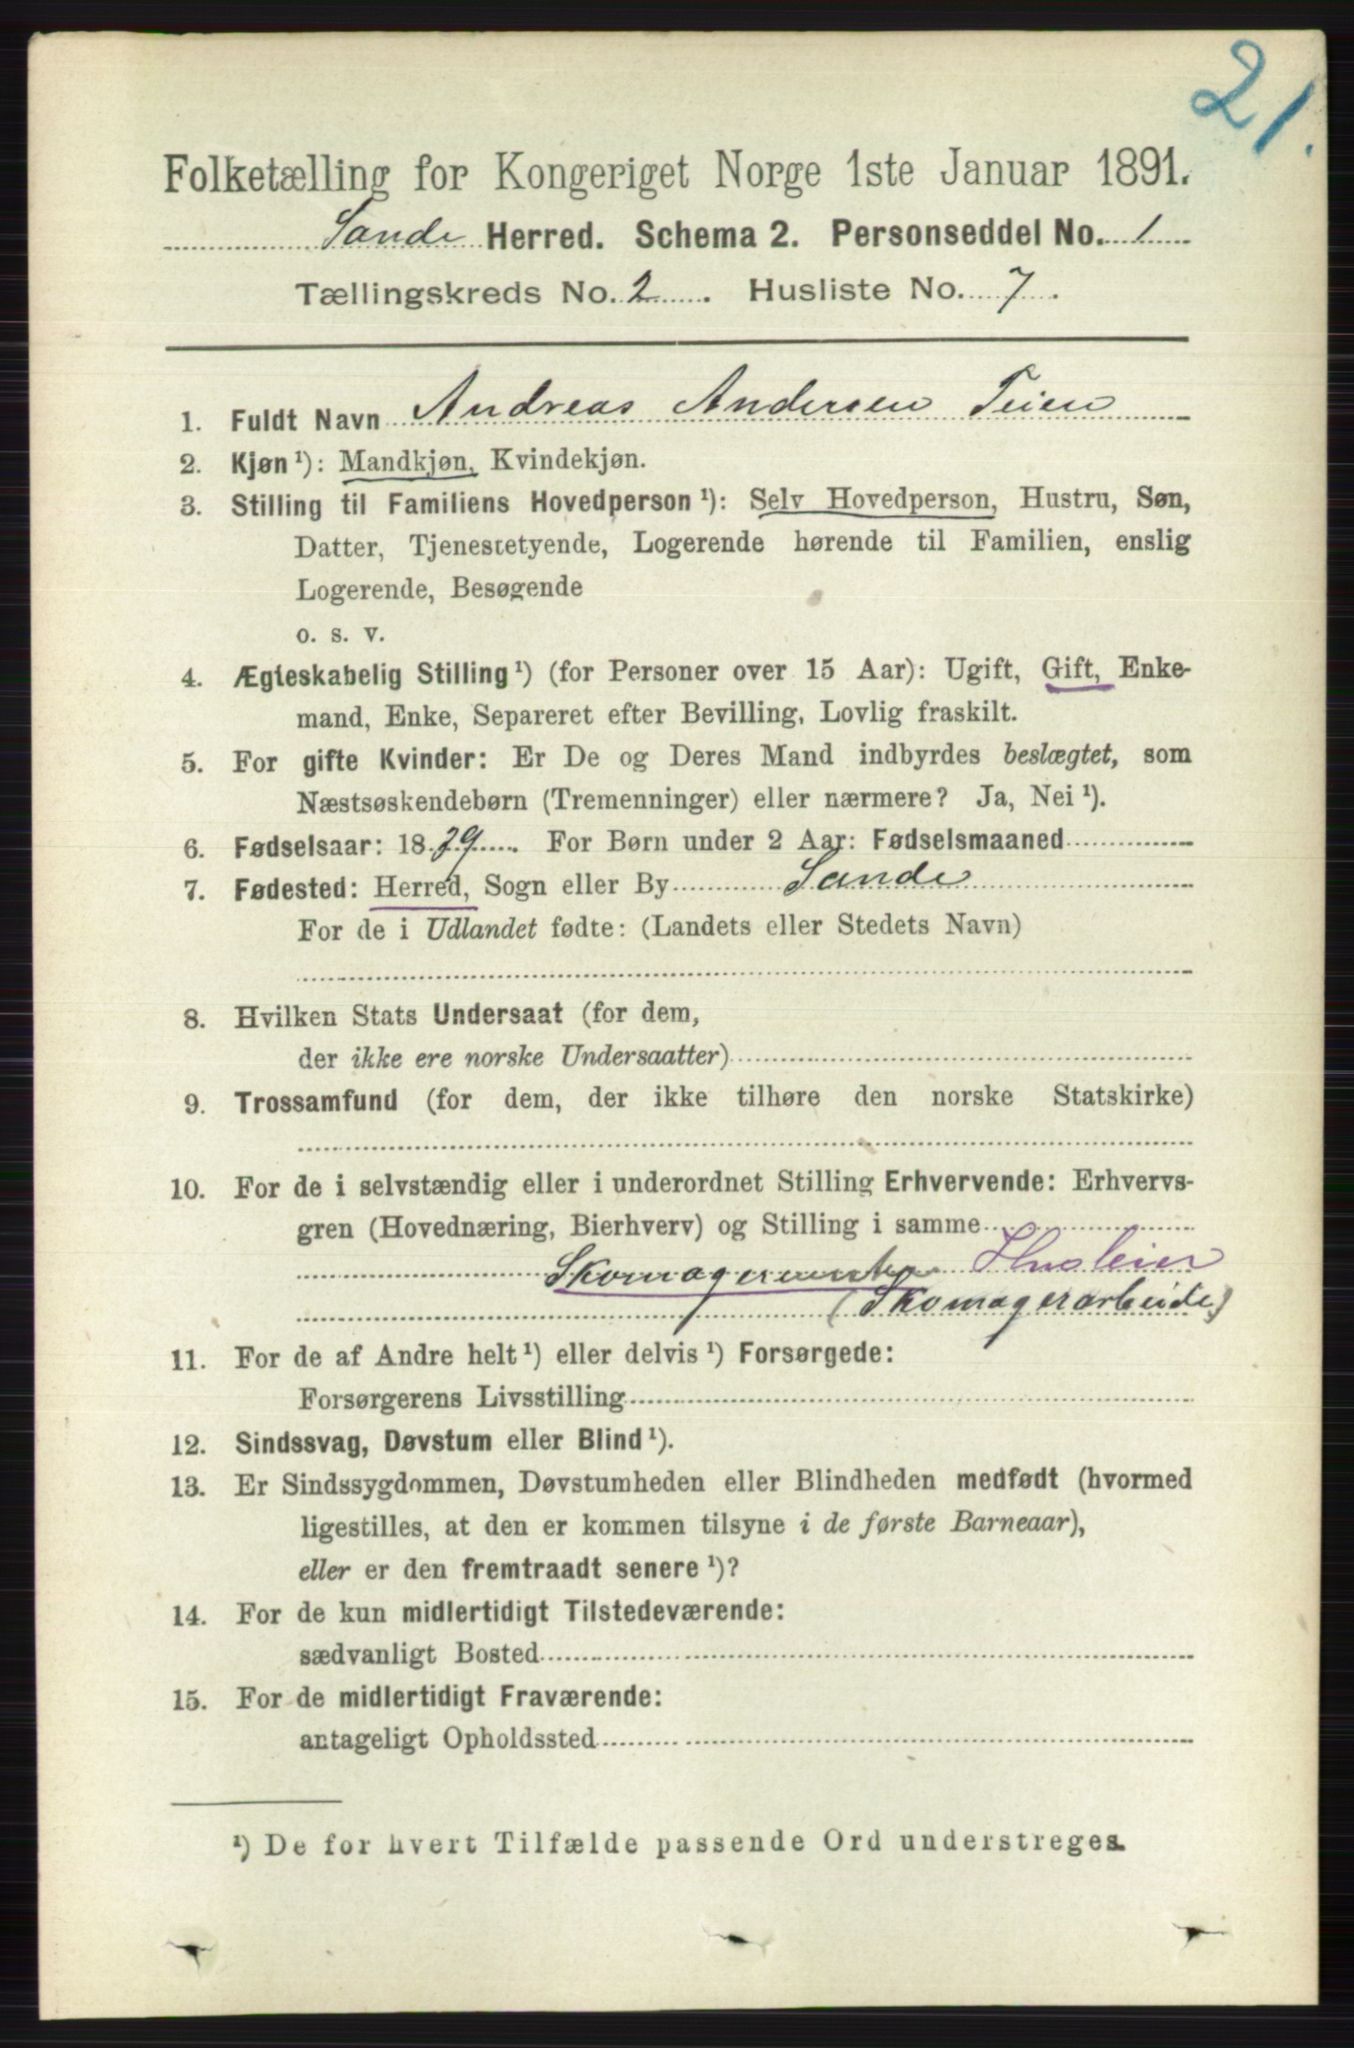 21.
Folketælling for Kongeriget Norge 1ste Januar 1891.
Sande Herred. Schema 2. Personseddel No. 1
Tællingskreds No. 2. Husliste No. 7.
1. Fuldt Navn Andreas Andersen Teien
2. Kjøn ¹): Mandkjøn, Kvindekjøn.
3. Stilling til Familiens Hovedperson ¹): Selv Hovedperson, Hustru, Søn,
Datter, Tjenestetyende, Logerende hørende til Familien, enslig
Logerende, Besøgende
o. s. v.
4. Ægteskabelig Stilling ¹) (for Personer over 15 Aar): Ugift, Gift, Enke-
mand, Enke, Separeret efter Bevilling, Lovlig fraskilt.
5. For gifte Kvinder: Er De og Deres Mand indbyrdes beslægtet, som
Næstsøskendebørn (Tremenninger) eller nærmere? Ja, Nei ¹).
6. Fødselsaar: 1829. For Børn under 2 Aar: Fødselsmaaned
7. Fødested: Herred, Sogn eller By Sande
For de i Udlandet fødte: (Landets eller Stedets Navn)
8. Hvilken Stats Undersaat (for dem,
der ikke ere norske Undersaatter)
9. Trossamfund (for dem, der ikke tilhøre den norske Statskirke)
10. For de i selvstændig eller i underordnet Stilling Erhvervende: Erhvervs-
gren (Hovednæring, Bierhverv) og Stilling i samme
Husleier
(Skomagerarbeide)
11. For de af Andre helt ¹) eller delvis ¹) Forsørgede:
Forsørgerens Livsstilling
12. Sindssvag, Døvstum eller Blind ¹).
13. Er Sindssygdommen, Døvstumheden eller Blindheden medfødt (hvormed
ligestilles, at den er kommen tilsyne i de første Barneaar),
eller er den fremtraadt senere ¹)?
14. For de kun midlertidigt Tilstedeværende:
sædvanligt Bosted
15. For de midlertidigt Fraværende:
antageligt Opholdssted
¹) De for hvert Tilfælde passende Ord understreges.